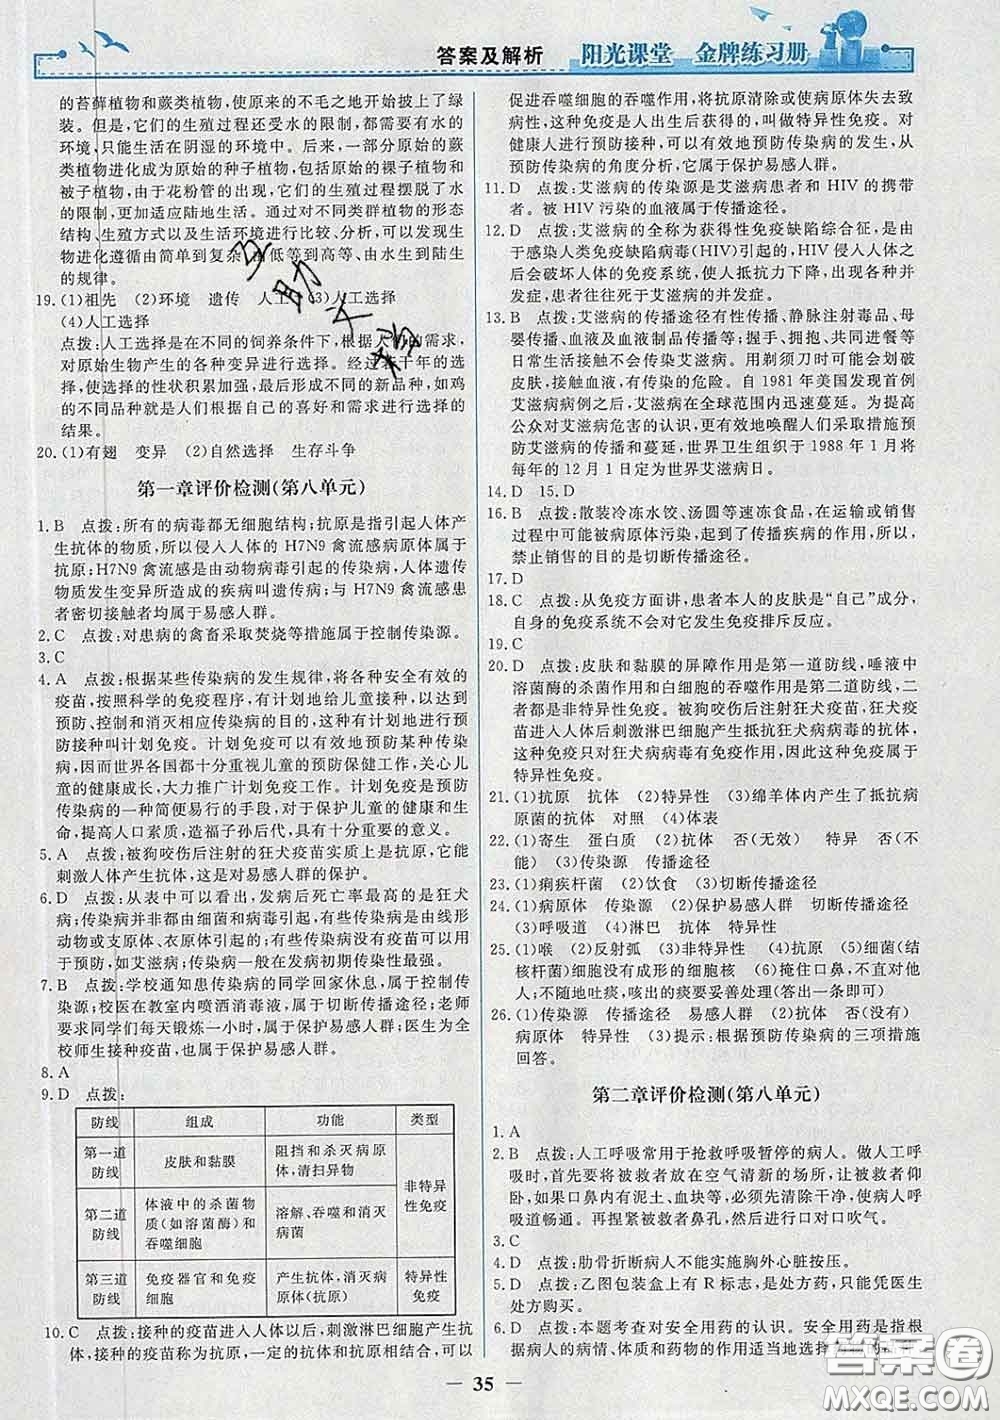 答案及解析
阳光课堂 金牌练习册
的苔藓植物和蕨类植物,使原来的不毛之地开始披上了绿
装。但是,它们的生殖过程还受水的限制,都需要有水的
环境,只能生活在阴湿的环境中。后来,一部分原始的蕨
类植物进化成为原始的种子植物,包括原始的裸子植物和
被子植物,由于花粉管的出现,它们的生殖过程摆脱了水
的限制,更加适应陆地生活。通过对不同类群植物的形态
结构、生殖方式以及生活环境进行比较、分析,可以发现生
物进化遵循由简单到复杂、由低等到高等、由水生到陆生
的规律。
19.(1)祖先 (2)环境 遗传 人工 (3)人工选择
(4)人工选择
点拨:人工选择是在不同的饲养条件下,根据人们的需求,
对原始生物产生的各种变异进行选择。经过若干年的选
择,使选择的性状积累加强,最后形成不同的新品种,如鸡
的不同品种就是人们根据自己的喜好和需求进行选择的
结果。
20.(1)有翅 变异 (2)自然选择 生存斗争
第一章评价检测(第八单元)
1. B 点拨:所有的病毒都无细胞结构;抗原是指引起人体产
生抗体的物质,所以侵入人体的 H7N9 禽流感病原体属于
抗原;H7N9 禽流感是由动物病毒引起的传染病,人体遗传
物质发生变异所造成的疾病叫遗传病;与 H7N9 禽流感患
者密切接触者均属于易感人群。
2. C 点拨:对患病的禽畜采取焚烧等措施属于控制传染源。
3. C
4. A 点拨:根据某些传染病的发生规律,将各种安全有效的
疫苗,按照科学的免疫程序,有计划地给儿童接种,以达到
预防、控制和消灭相应传染病的目的,这种有计划地进行预
防接种叫计划免疫。计划免疫可以有效地预防某种传染
病,因而世界各国都十分重视儿童的预防保健工作,关心儿
童的健康成长,大力推广计划免疫工作。计划免疫是预防
传染病的一种简便易行的手段,对于保护儿童的健康和生
命,提高人口素质,造福子孙后代,具有十分重要的意义。
5. A 点拨:被狗咬伤后注射的狂犬疫苗实质上是抗原,它能
刺激人体产生抗体,这是对易感人群的保护。
6. D 点拨:从表中可以看出,发病后死亡率最高的是狂犬
病;传染病并非都由细菌和病毒引起,有些传染病是由线形
动物或支原体、衣原体引起的;有些传染病没有疫苗可以用
于预防,如艾滋病;传染病一般在发病初期传染性最强。
7. B 点拨:学校通知患传染病的同学回家休息,属于控制传
染源;校医在教室内喷洒消毒液,属于切断传播途径;老师
要求同学们每天锻炼一小时,属于保护易感人群;医生为全
校师生接种疫苗,也属于保护易感人群。
8. A
9. D 点拨:
防线 组成 功能 类型
第一道防线 皮肤和黏膜 阻挡和杀灭病原体;清扫异物 非特异性免疫
第二道防线 体液中的杀菌物质(如溶菌酶)和吞噬细胞 溶解、吞噬和消灭病菌
第三道防线 免疫器官和免疫细胞 产生抗体,消灭病原体(抗原) 特异性免疫
10. C 点拨:接种的疫苗进入人体以后,刺激淋巴细胞产生抗
体,接种的疫苗称为抗原,一定的抗体和抗原相结合,可以
促进吞噬细胞的吞噬作用,将抗原清除或使病原体失去致
病性,这种免疫是人出生后获得的,叫做特异性免疫。对
健康人进行预防接种,可以有效地预防传染病的发生,从
预防传染病的角度分析,它属于保护易感人群。
11. D 点拨:艾滋病的传染源是艾滋病患者和 HIV 的携带
者。被 HIV 污染的血液属于传播途径。
12. D 点拨:艾滋病的全称为获得性免疫缺陷综合征,是由
于感染人类免疫缺陷病毒(HIV)引起的,HIV 侵入人体之
后会破坏人体的免疫系统,使人抵抗力下降,出现各种病
症,患者往往死于艾滋病的并发症。
13. B 点拨:艾滋病的传播途径有性传播、静脉注射毒品、母
婴传播、血液及血液制品传播等;握手、拥抱、共同进餐等
日常生活接触不会传染艾滋病。用剃须刀时可能会划破
皮肤,接触血液,有传染的危险。自 1981 年美国发现首例
艾滋病病例之后,艾滋病在全球范围内迅速蔓延。为提高
公众对艾滋病危害的认识,更有效地唤醒人们采取措施预
防艾滋病的传播和蔓延,世界卫生组织于 1988 年 1 月将
每年的 12 月 1 日定为世界艾滋病日。
14. D 15. D
16. B 点拨:散装冷冻水饺、汤圆等速冻食品,在运输或销售
过程中可能被病原体污染,起到了传播疾病的作用,所以,
禁止销售的目的是切断传播途径。
17. D
18. C 点拨:从免疫方面讲,患者本人的皮肤是“自己”成分,
自身的免疫系统不会对它发生免疫排斥反应。
19. C
20. D 点拨:皮肤和黏膜的屏障作用是第一道防线,唾液中
溶菌酶的杀菌作用和白细胞的吞噬作用是第二道防线,二
者都是非特异性免疫。被狗咬伤后注射狂犬疫苗,狂犬疫
苗进入人体后刺激淋巴细胞产生抵抗狂犬病病毒的抗体,
这种免疫只对狂犬病病毒有免疫作用,因此这种免疫属于
特异性免疫。
21.(1)抗原 抗体 (2)特异性 (3)绵羊体内产生了抵抗病
原菌的抗体 对照 (4)体表
22.(1)寄生 蛋白质 (2)抗体 否(无效) 特异 否(不
能) (3)传染源 传播途径
23.(1)痢疾杆菌 (2)饮食 (3)切断传播途径
24.(1)病原体 传染源 (2)保护易感人群 切断传播途径
(3)呼吸道 (4)淋巴 抗体 抗原
25.(1)喉 (2)反射弧 (3)非特异性 (4)抗原 (5)细菌(结
核杆菌)细胞没有成形的细胞核 (6)掩住口鼻,不直对他
人;不随地吐痰,咳出的痰要妥善处理(答出一条即可)
26.(1)传染源 传播途径 易感人群 (2)抗体 否(没有)
病原体 特异性 (3)提示:根据预防传染病的三项措施
回答。
第二章评价检测(第八单元)
1. A
2. B 点拨:人工呼吸常用于抢救呼吸暂停的病人。做人工呼
吸时,首先要将被救者放在空气清新的场所,让被救者仰
卧,如果口鼻内有泥土、血块等,必须先清除干净,使病人呼
吸道畅通。再捏紧被救者鼻孔,然后进行口对口吹气。
3. C
4. D 点拨:肋骨折断病人不能实施胸外心脏按压。
5. D 点拨:乙图包装盒上有 R 标志,是处方药,只能凭医生
处方购买。
6. D 点拨:本题考查对安全用药的认识。安全用药是指根
据病人的病情、体质和药物的作用适当地选择
35
答案圈
MXQE.COM